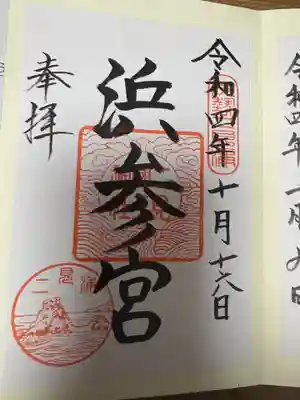 令和四年一月九日
令和四年十月十六日
浜参宮
奉拝
二見浦